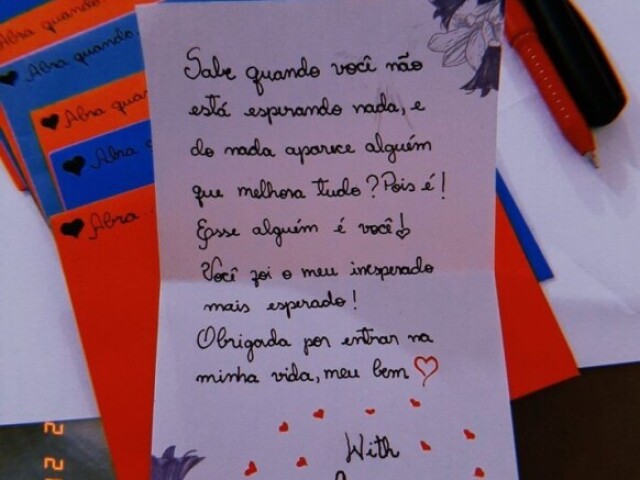 Abra quando...
Abra quando...
Abra quan
Abra q
Abra...
Sabe quando você não
está esperando nada, e
do nada aparece alguém
que melhora tudo? Pois é!
Esse alguém é você!
Você foi o meu inesperado
mais esperado!
Obrigada por entrar na
minha vida, meu bem
With